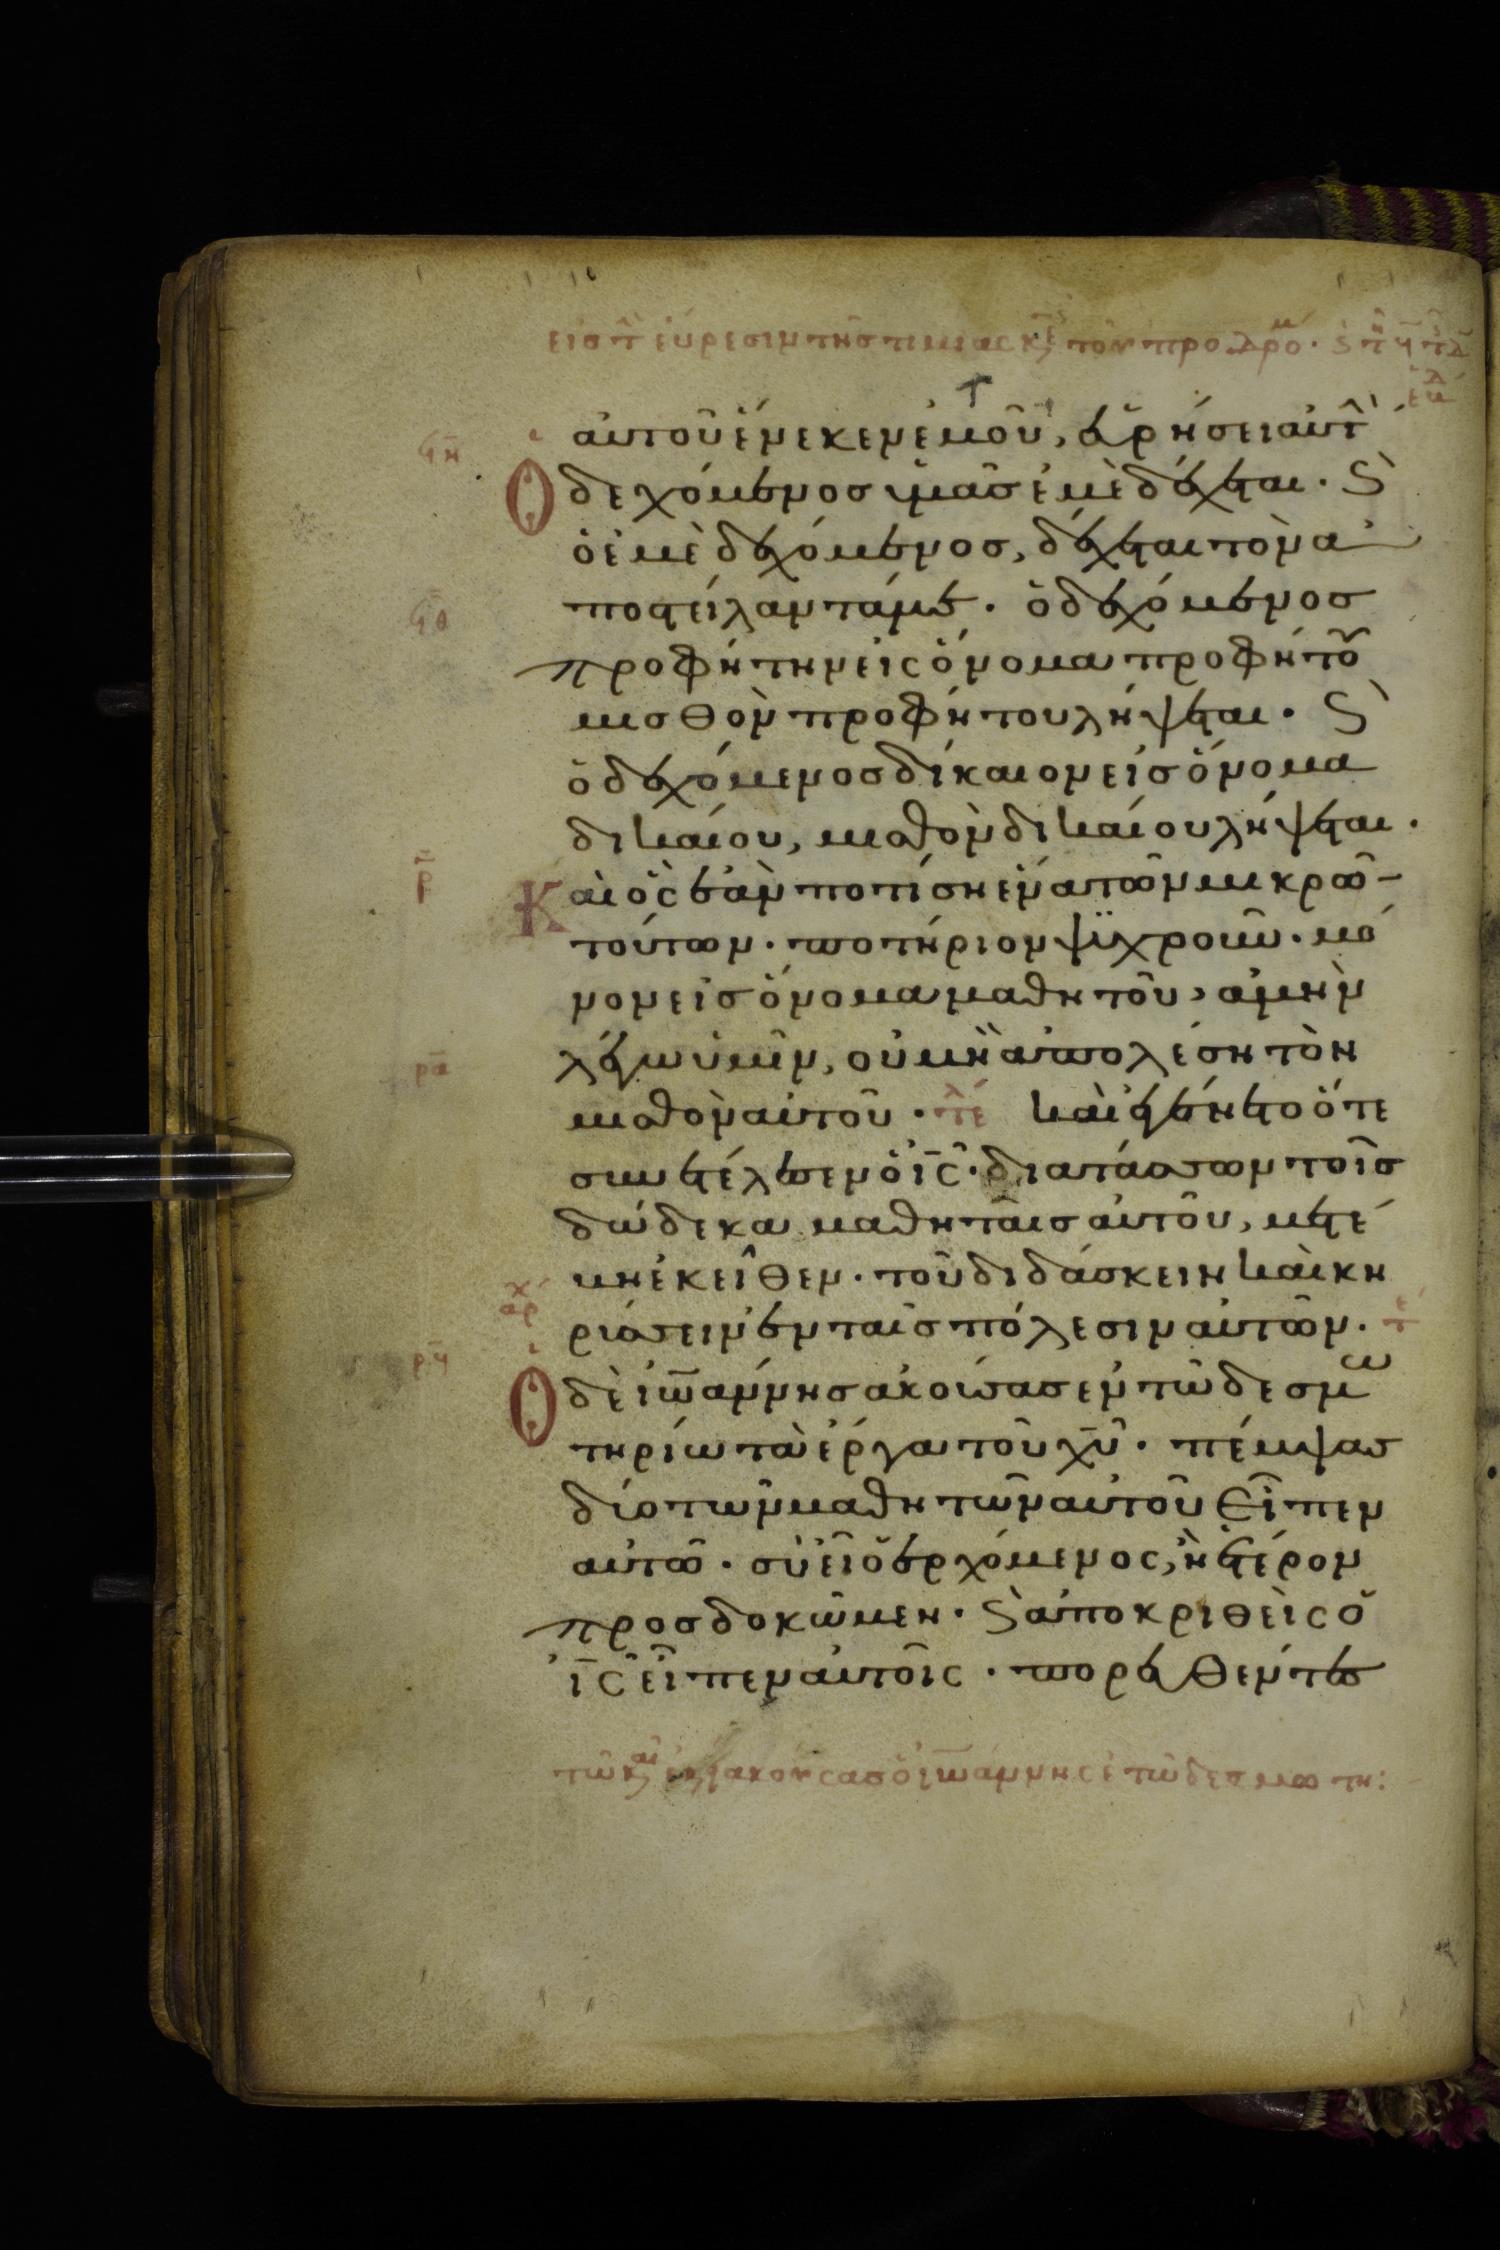 αὐτοῦ ἕνεκεν ἐμοῦ, εὑρήσει αὐτ
Ὁ δεχόμενος ὑμᾶσ ἐμὲ δέχεται · Ϛ
ὁ ἐμὲ δεχόμενοσ, δέχεται τὸν α
ποστείλαντά με · ὁ δεχόμενοσ
προφήτην εἰς ὄνομα προφήτου
μισθὸν προφήτου λήψεται · Ϛ
ὁ δεχόμενοσ δίκαιον εἰσ ὄνομα
δικαίου, μισθὸν δικαίου λήψεται ·
ϟθ
ρ
Καὶ ὃς ἐὰν ποτίση ἕνα τῶν μικρῶ
τούτων · ποτήριον ψϊχροῦ · μό
νον εἰσ ὄνομα μαθητοῦ, ἀμὴν
ρα
λέγω ὑμῖν, οὐ μὴ ἀπολέση τὸν
μισθὸν αὐτοῦ · τε καὶ ἐγένετο ὅτε
συνετέλεσεν ὁ ις · διατάσσων τοῖσ
δώδεκα μαθηταῖσ αὐτοῦ, μετέ
βη ἐκεῖθεν · τοῦ διδάσκειν καὶ κη
αρχ
ρύσσειν ἐν ταῖσ πόλεσιν αὐτῶν ·
Ὁ δὲ ἰωάννησ ἀκούσασ ἐν τῶ δεσμω
τηρίω τὰ ἔργα τοῦ χυ · πέμψασ
δύο τῶν μαθητῶν αὐτοῦ Εἶπεν
αὐτῶ · σὺ εἶ ὁ ἐρχόμενος, ἢ ἕτερον
προσδοκῶμεν · Ϛ ἀποκριθεὶς ὁ
ις εἶπεν αὐτοῖς · πορευθέντες
τῶ και ἀκούσασ ὁ ἰωάννης ἐ τῶ δεσμωτη: